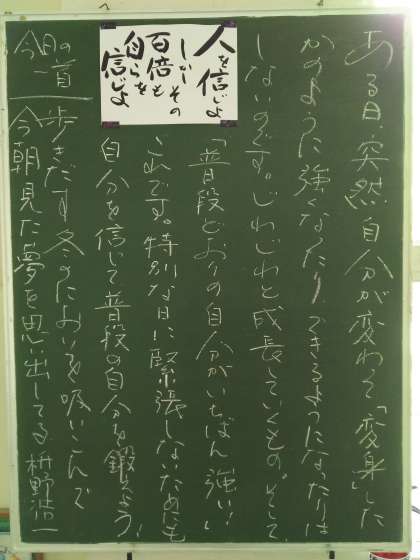 ある日、突然自分が変わって「変身」した
かのように強くなったり、できるようになったりは
しないのです。じわじわと成長していくもの。そして、
人を信じよ
しかしその
百倍も
自らを
信じよ
「普段どおりの自分がいちばん強い！」
これです。特別な日に緊張しないためにも
自分を信じて普段の自分を鍛えよう！
今日の一首
歩きだす冬のにおいを吸いこんで
今朝見た夢を思い出してる 枡野浩一